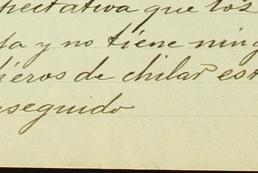 pectativa que los
sa y no tiene ning
ñeros de chilar es
nseguido